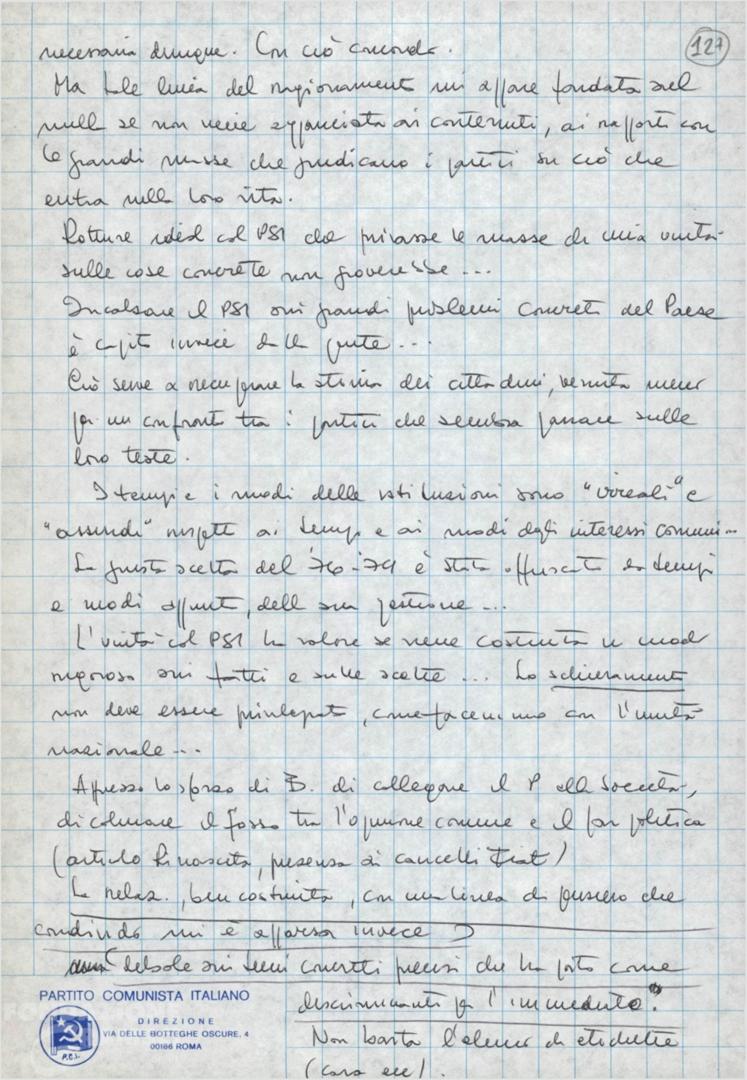 127
necessaria dunque. Con ciò concordo.
Ma tale linea del ragionamento mi appare fondata sul
nulla se non viene agganciata ai contenuti, ai rapporti con
le grandi masse che giudicano i partiti su ciò che
entra nella loro vita.
Rotture col PSI che privasse le masse di una unità
sulle cose concrete non gioverebbe...
Incalzare il PSI sui grandi problemi concreti del Paese
è capito invece dalla gente...
Ciò serve a recuperare la stima dei cittadini, venuta meno
per un confronto tra i partiti che sembra passare sulle
loro teste.
I tempi e i modi delle istituzioni sono "irreali" e
"assurdi" rispetto ai tempi e ai modi degli interessi comuni...
La giusta scelta del '76-'79 è stata offuscata da tempi
e modi appunto, della sua gestione...
L'unità col PSI ha valore se viene costruita in modo
rigoroso sui fatti e sulle scelte... Lo schieramento
non deve essere privilegiato, come facemmo con l'unità
nazionale...
Apprezzo lo sforzo di B. di collegare il P alla Società,
di colmare il fosso tra l'opinione comune e il far politica
(articolo Rinascita, presenza ai cancelli Fiat)
La relaz., ben costruita, con una linea di pensiero che
condivido mi è apparsa invece
debole sui temi concreti precisi che ha posto come
discriminanti per l'immediato.
Non basta l'elenco di etichette
(casa ecc).
PARTITO COMUNISTA ITALIANO
DIREZIONE
VIA DELLE BOTTEGHE OSCURE, 4
00186 ROMA
P.C.I.